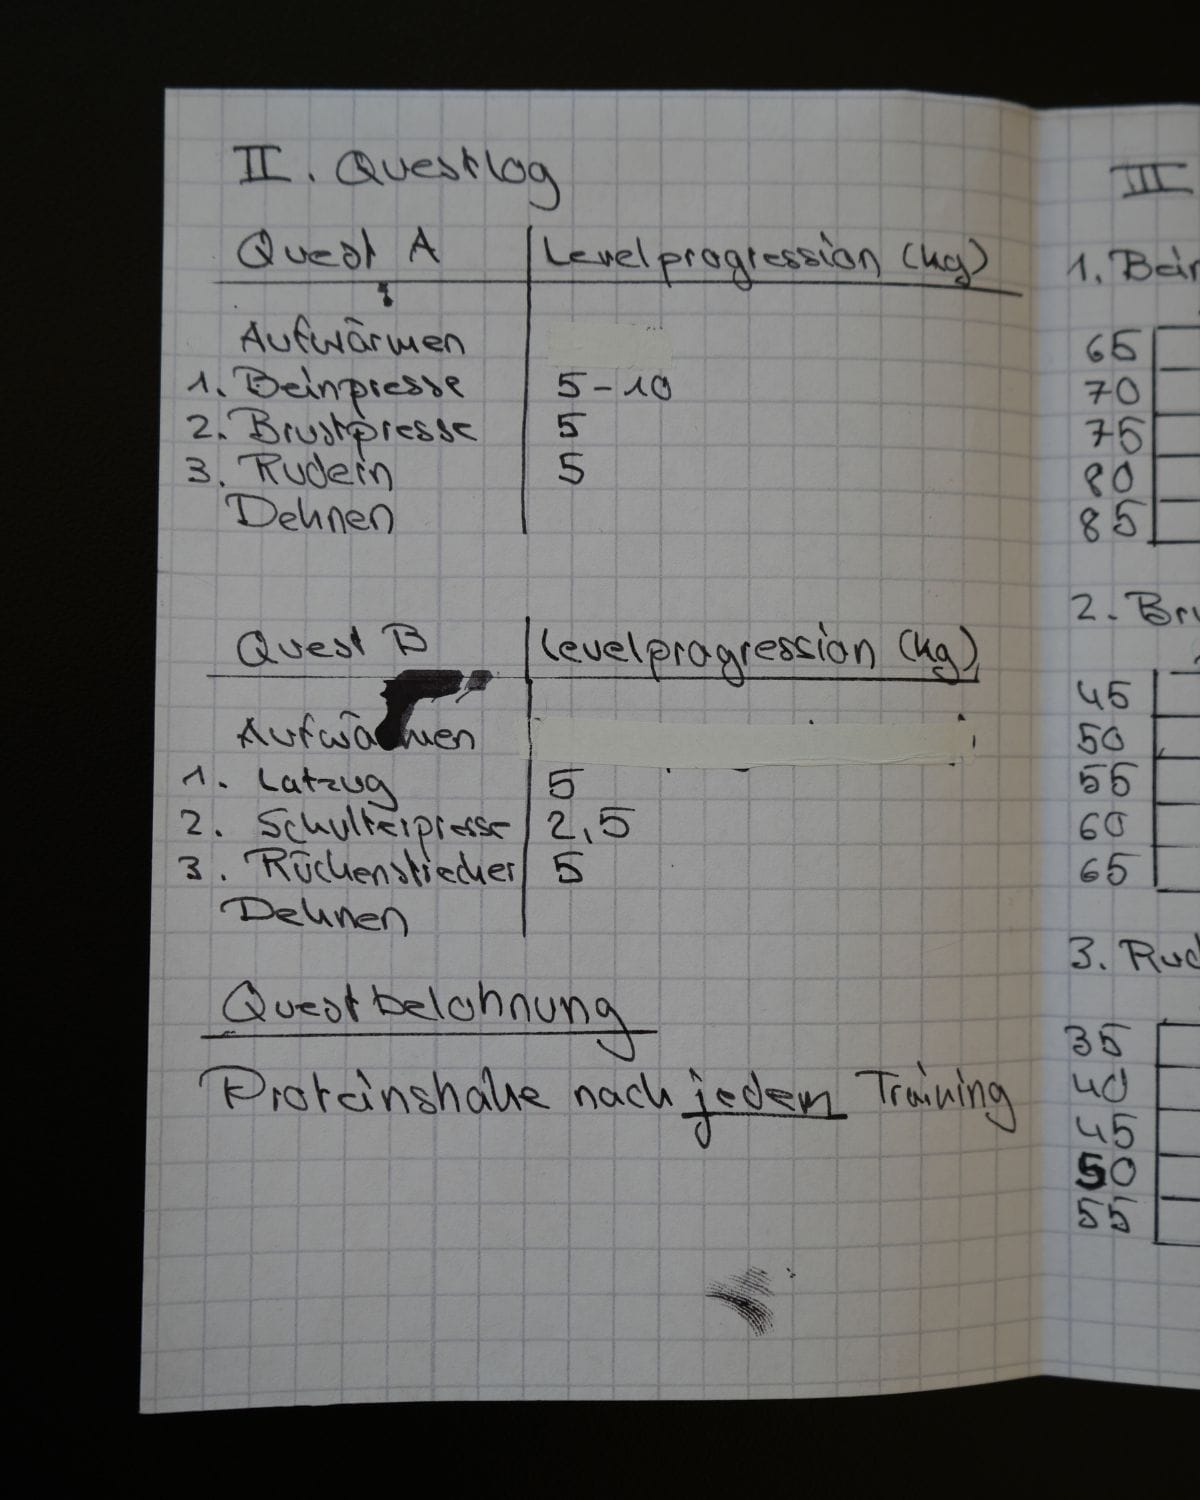 II. Questlog
Quest A Levelprogression (kg)
Aufwärmen
1. Beinpresse 5-10
2. Brustpresse 5
3. Rudern 5
Dehnen
Quest B Levelprogression (kg)
Aufwärmen
1. Latzug 5
2. Schulterpresse 2,5
3. Rückenstrecker 5
Dehnen
Questbelohnung
Proteinshake nach jedem Training
III
1. Bein
65
70
75
80
85
2. Bru
45
50
55
60
65
3. Rud
35
40
45
50
55